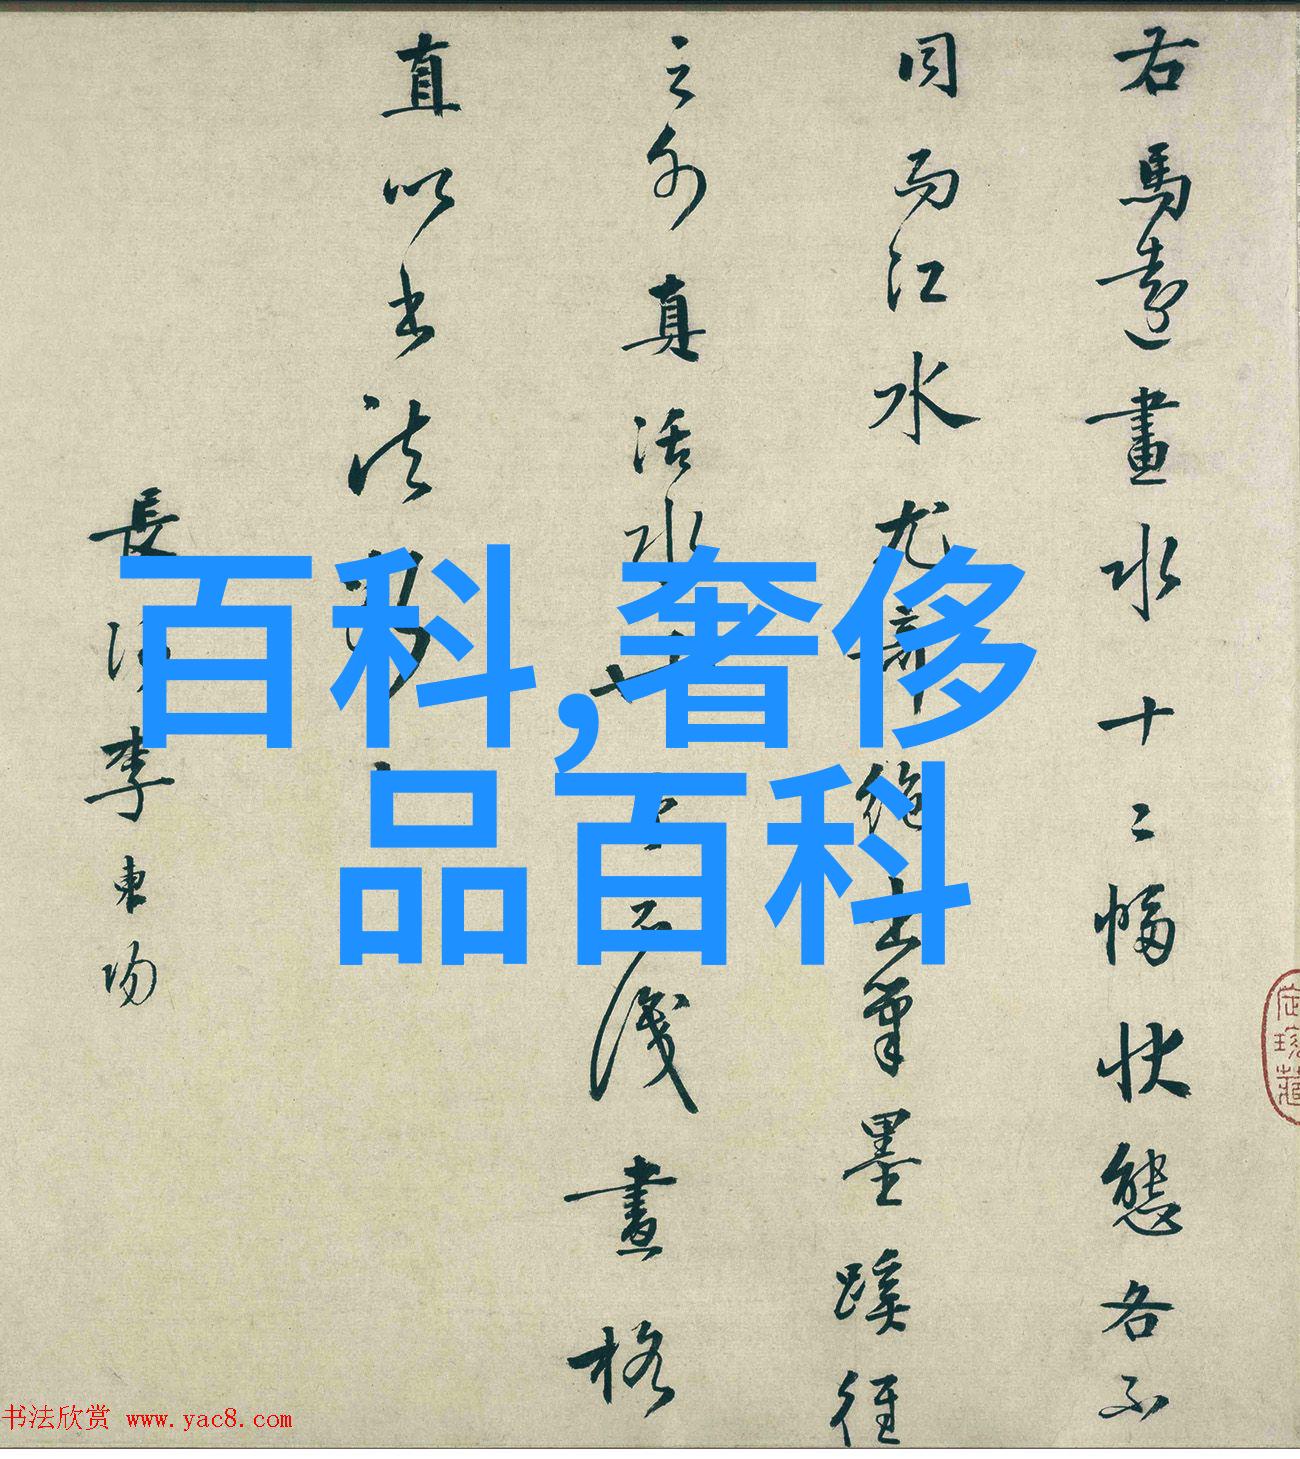 右馬遠畫水十二幅狀態各不
同而江水尤絕出筆墨蹊徑
之外真活水不識畫格
直以書法
長沙李東陽
百科,奢侈
品百科
书法欣赏 www.yac8.com